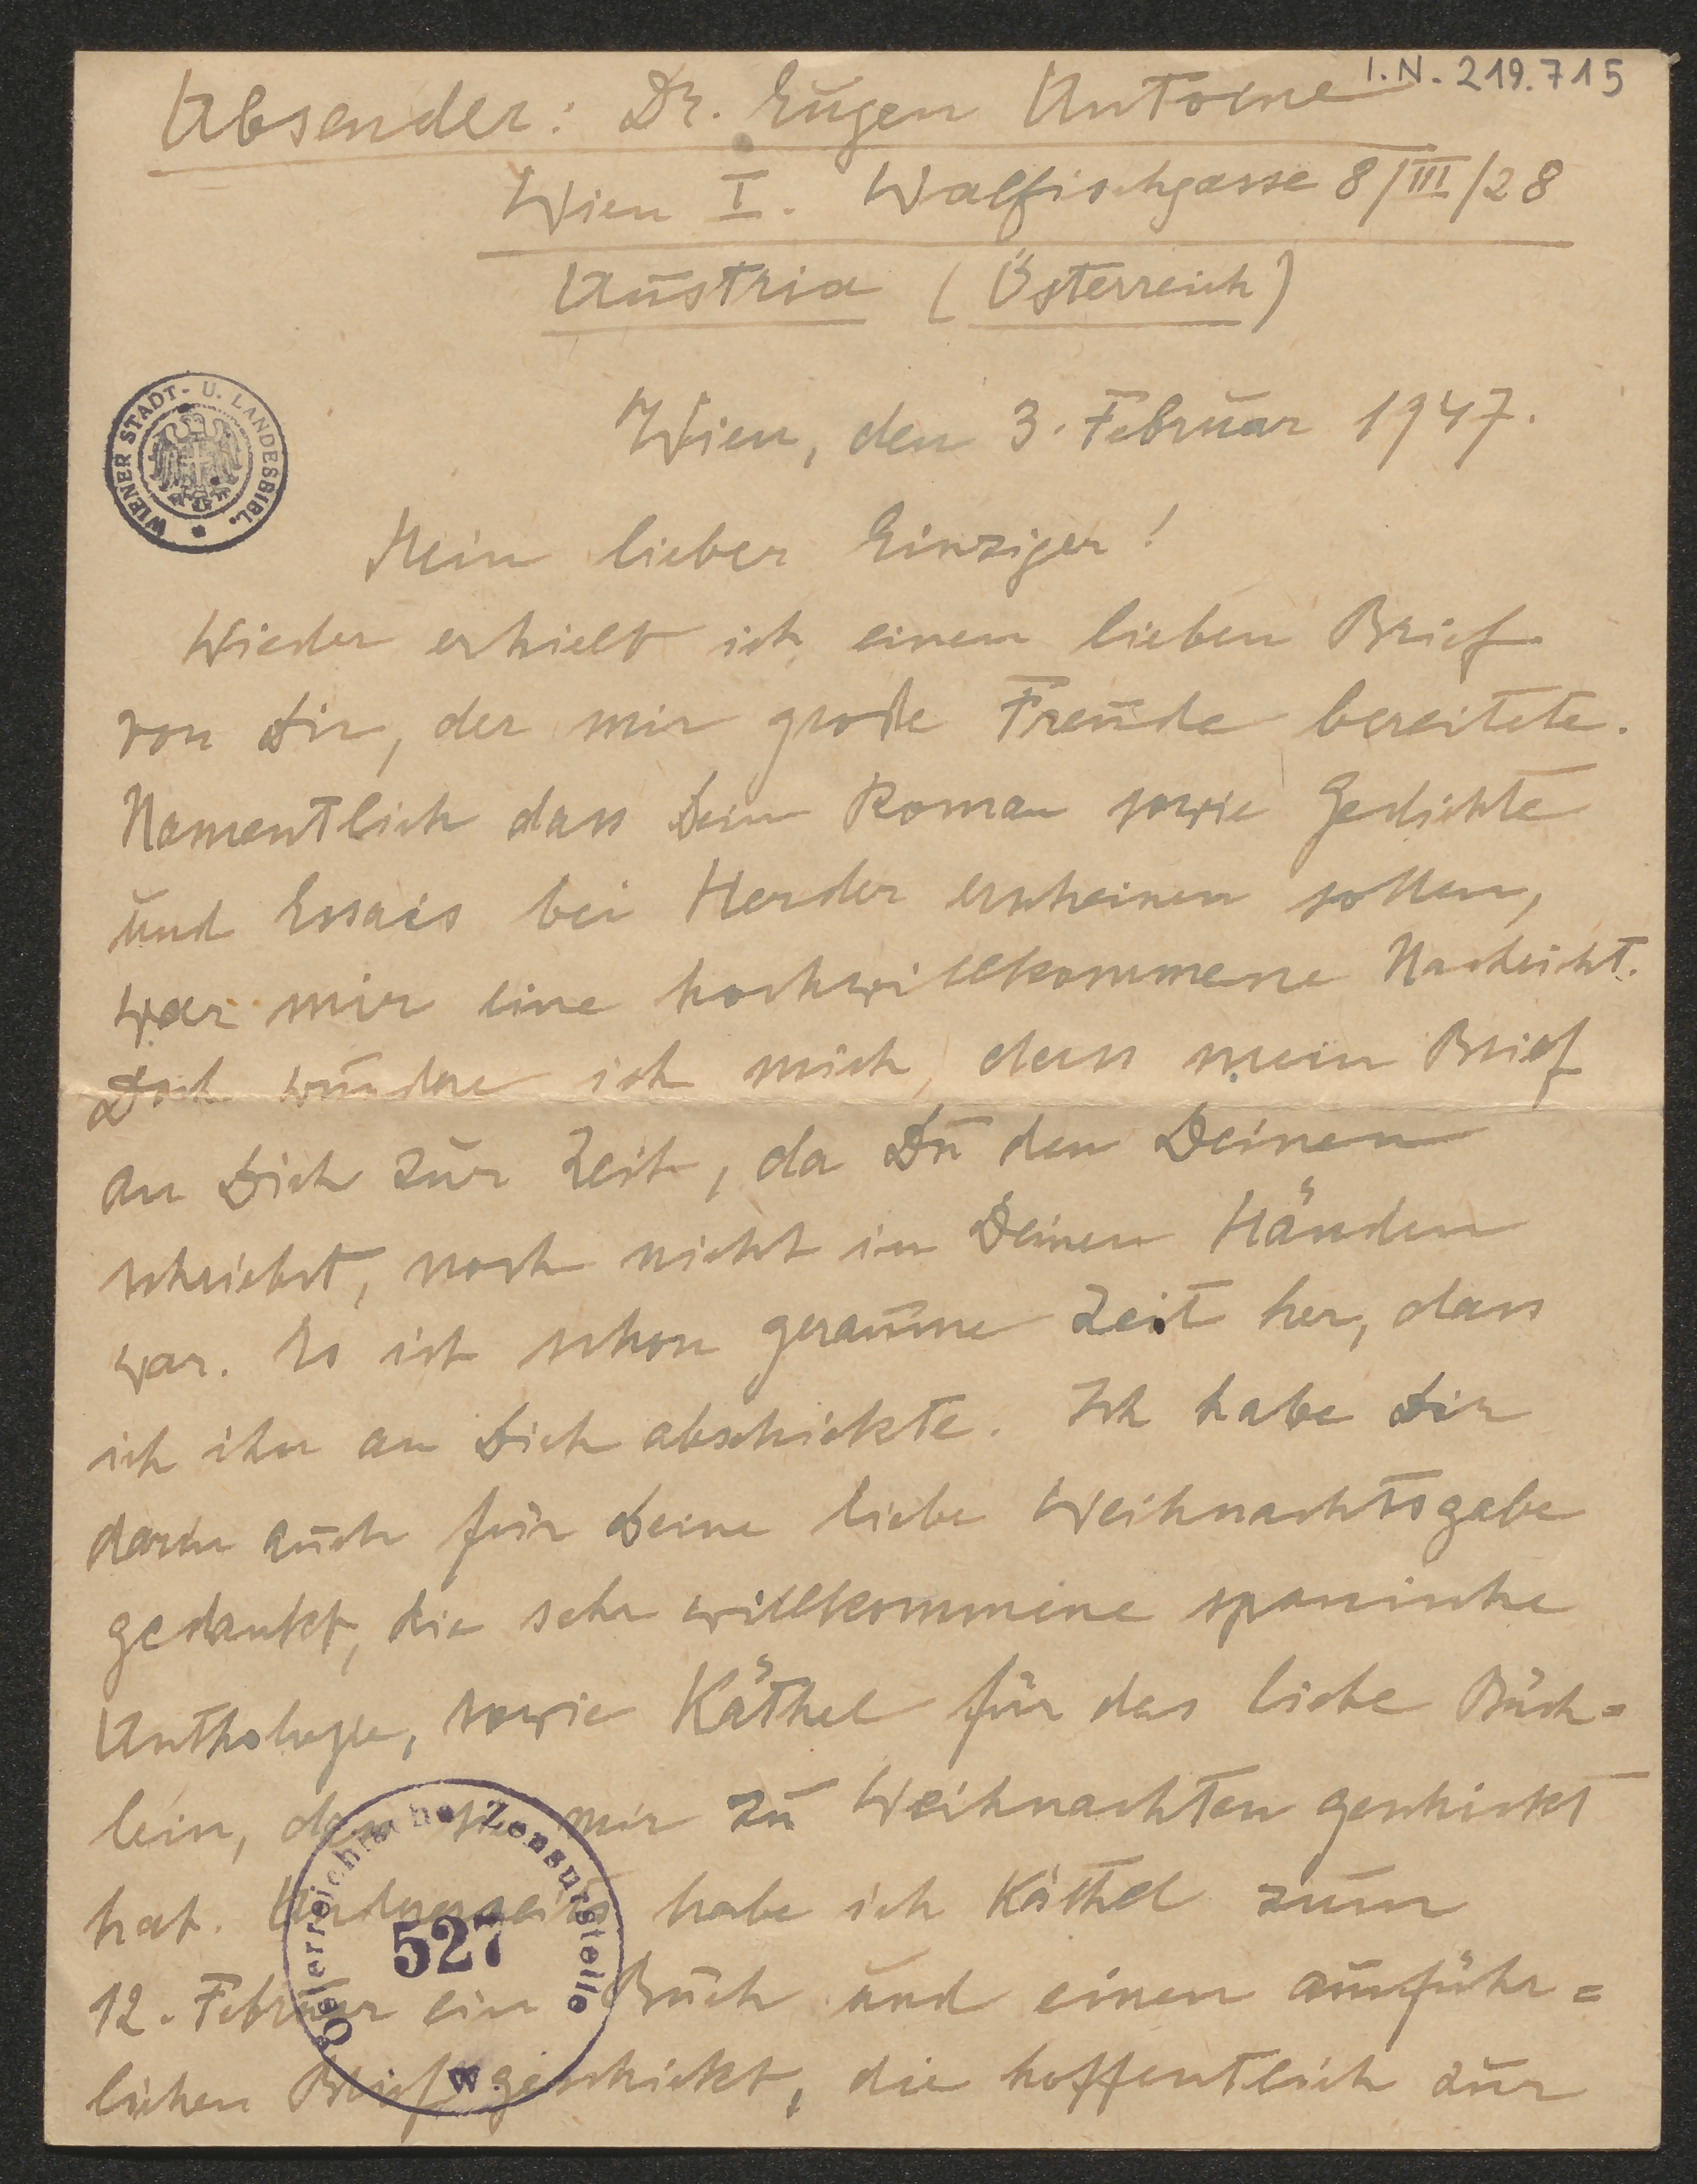 I.N. 219.715
Absender: Dr. Eugen Antoine
Wien I. Walfischgasse 8/III/28
Austria (Österreich)
WIENER STADT- U. LANDESBIBL.
Wien, den 3. Februar 1947.
Mein lieber Einziger!
Wieder erhielt ich einen lieben Brief
von Dir, der mir große Freude bereitete.
Namentlich dass Dein Roman sowie Gedichte
und Essais bei Herder erscheinen sollen,
war mir eine hochwillkommene Nachricht.
Doch wundere ich mich, dass mein Brief
an Dich zur Zeit, da Du den Deinen
schriebst, noch nicht in Deinen Händen
war. Es ist schon geraume Zeit her, dass
ich ihn an Dich abschickte. Ich habe Dir
darin auch für Deine liebe Weihnachtsgabe
gedankt, die sehr willkommene spanische
Anthologie, sowie Käthel für das liebe Büch=
lein, das sie mir zu Weihnachten geschickt
hat. Andererseits habe ich Käthel zum
12. Februar ein Buch und einen ausführ=
lichen Brief geschickt, die hoffentlich zur
Österreichische Zensurstelle
527
W.